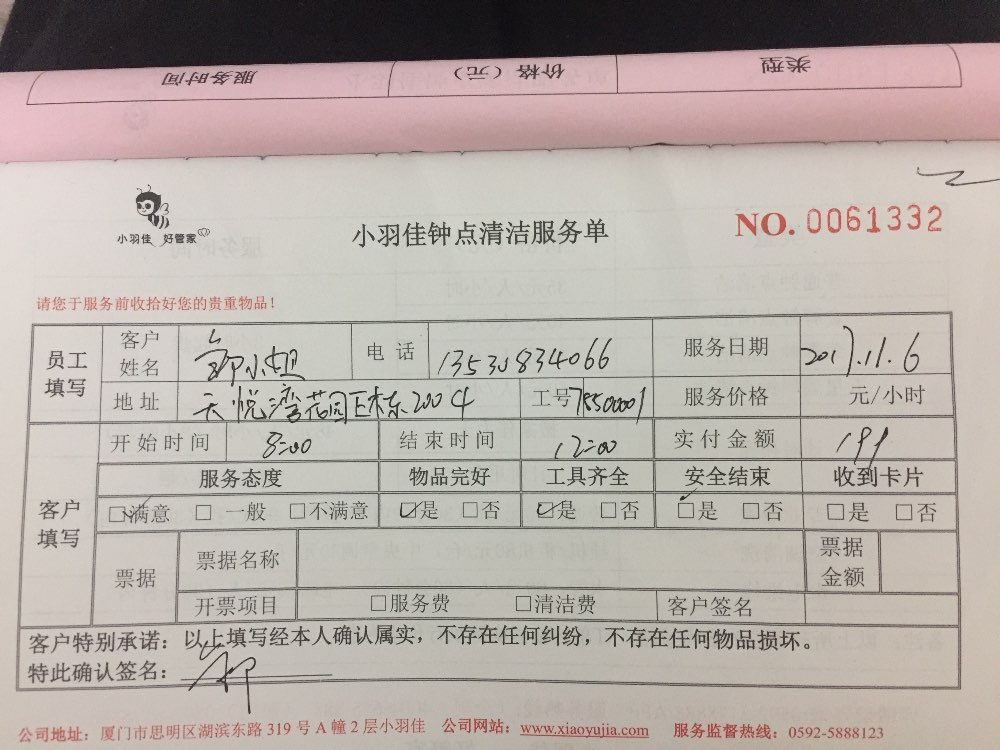 服务时间 价格（元） 类型
小羽佳 好管家
小羽佳钟点清洁服务单
NO. 0061332
请您于服务前收拾好您的贵重物品！
员工填写 客户姓名 小姐 电话 服务日期 2017.11.6
地址 天悦湾花园 2004 工号 服务价格 元/小时
客户填写 开始时间 8:00 结束时间 12:00 实付金额 199
服务态度 物品完好 工具齐全 安全结束 收到卡片
☑满意 □ 一般 □不满意 ☑是 □否 ☑是 □否 ☑是 □否 □是 □否
票据 票据名称 票据金额
开票项目 □服务费 □清洁费 客户签名
客户特别承诺：以上填写经本人确认属实，不存在任何纠纷，不存在任何物品损坏。
特此确认签名：
公司地址：厦门市思明区湖滨东路 319 号 A 幢 2 层小羽佳 公司网站：www.xiaoyujia.com 服务监督热线：0592-5888123